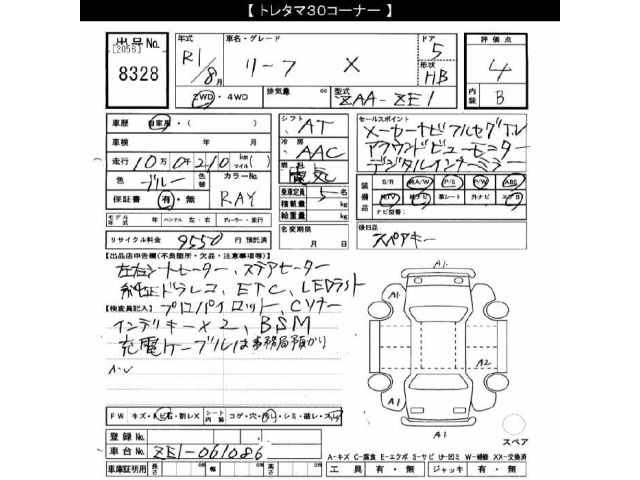 【 トレタマ30コーナー 】
出品No.
[2056]
8328
年式
R1/8月
車名・グレード
リーフ X
ドア
5
形状
HB
評価点
4
内装
B
2WD・4WD
排気量 cc
型式
ZAA-ZE1
車歴 自家用・( )
車検 年 月
走行 10万0千210 km (マイル)
色 ブルー
色替
カラーNo.
保証書 有・無
RAY
モデル年式 年
ハンドル 左・右
ディーラー・並行
リサイクル料金 9550 円 預託済
シフト AT
冷房 AAC
燃料 電気
乗車定員 5 名
積載量 kg
総重量 kg
名変期限
月 日
セールスポイント
メーカーナビ フルセグTV
アラウンドビューモニター
デジタルインナーミラー
装備品
S/R 純A/W P/S P/W ABS
純TV 純ナビ 革シート 外ナビ エアB
ナビ型番:
後日品
スペアキー
【出品店申告欄(不良箇所・欠品・注意事項等)】
左右シートヒーター、ステアヒーター
純正ドラレコ、ETC、LEDライト
【検査員記入】プロパイロット、Cソナー
インテリキー×2、BSM
充電ケーブルは事務局預かり
A・U
FW キズ・トビ石・割レX
シート内装 コゲ・穴・汚レ・シミ・破レ・スレ
登録No.
車台No. ZE1-061086
車庫証明用
長さ cm
幅 cm
高さ cm
A1
A1
A2
A1
A1
スペア
A-キズ C-腐食 E-エクボ S-サビ U-凹ミ W-補修 XX-交換済
工具 有・無
ジャッキ 有・無